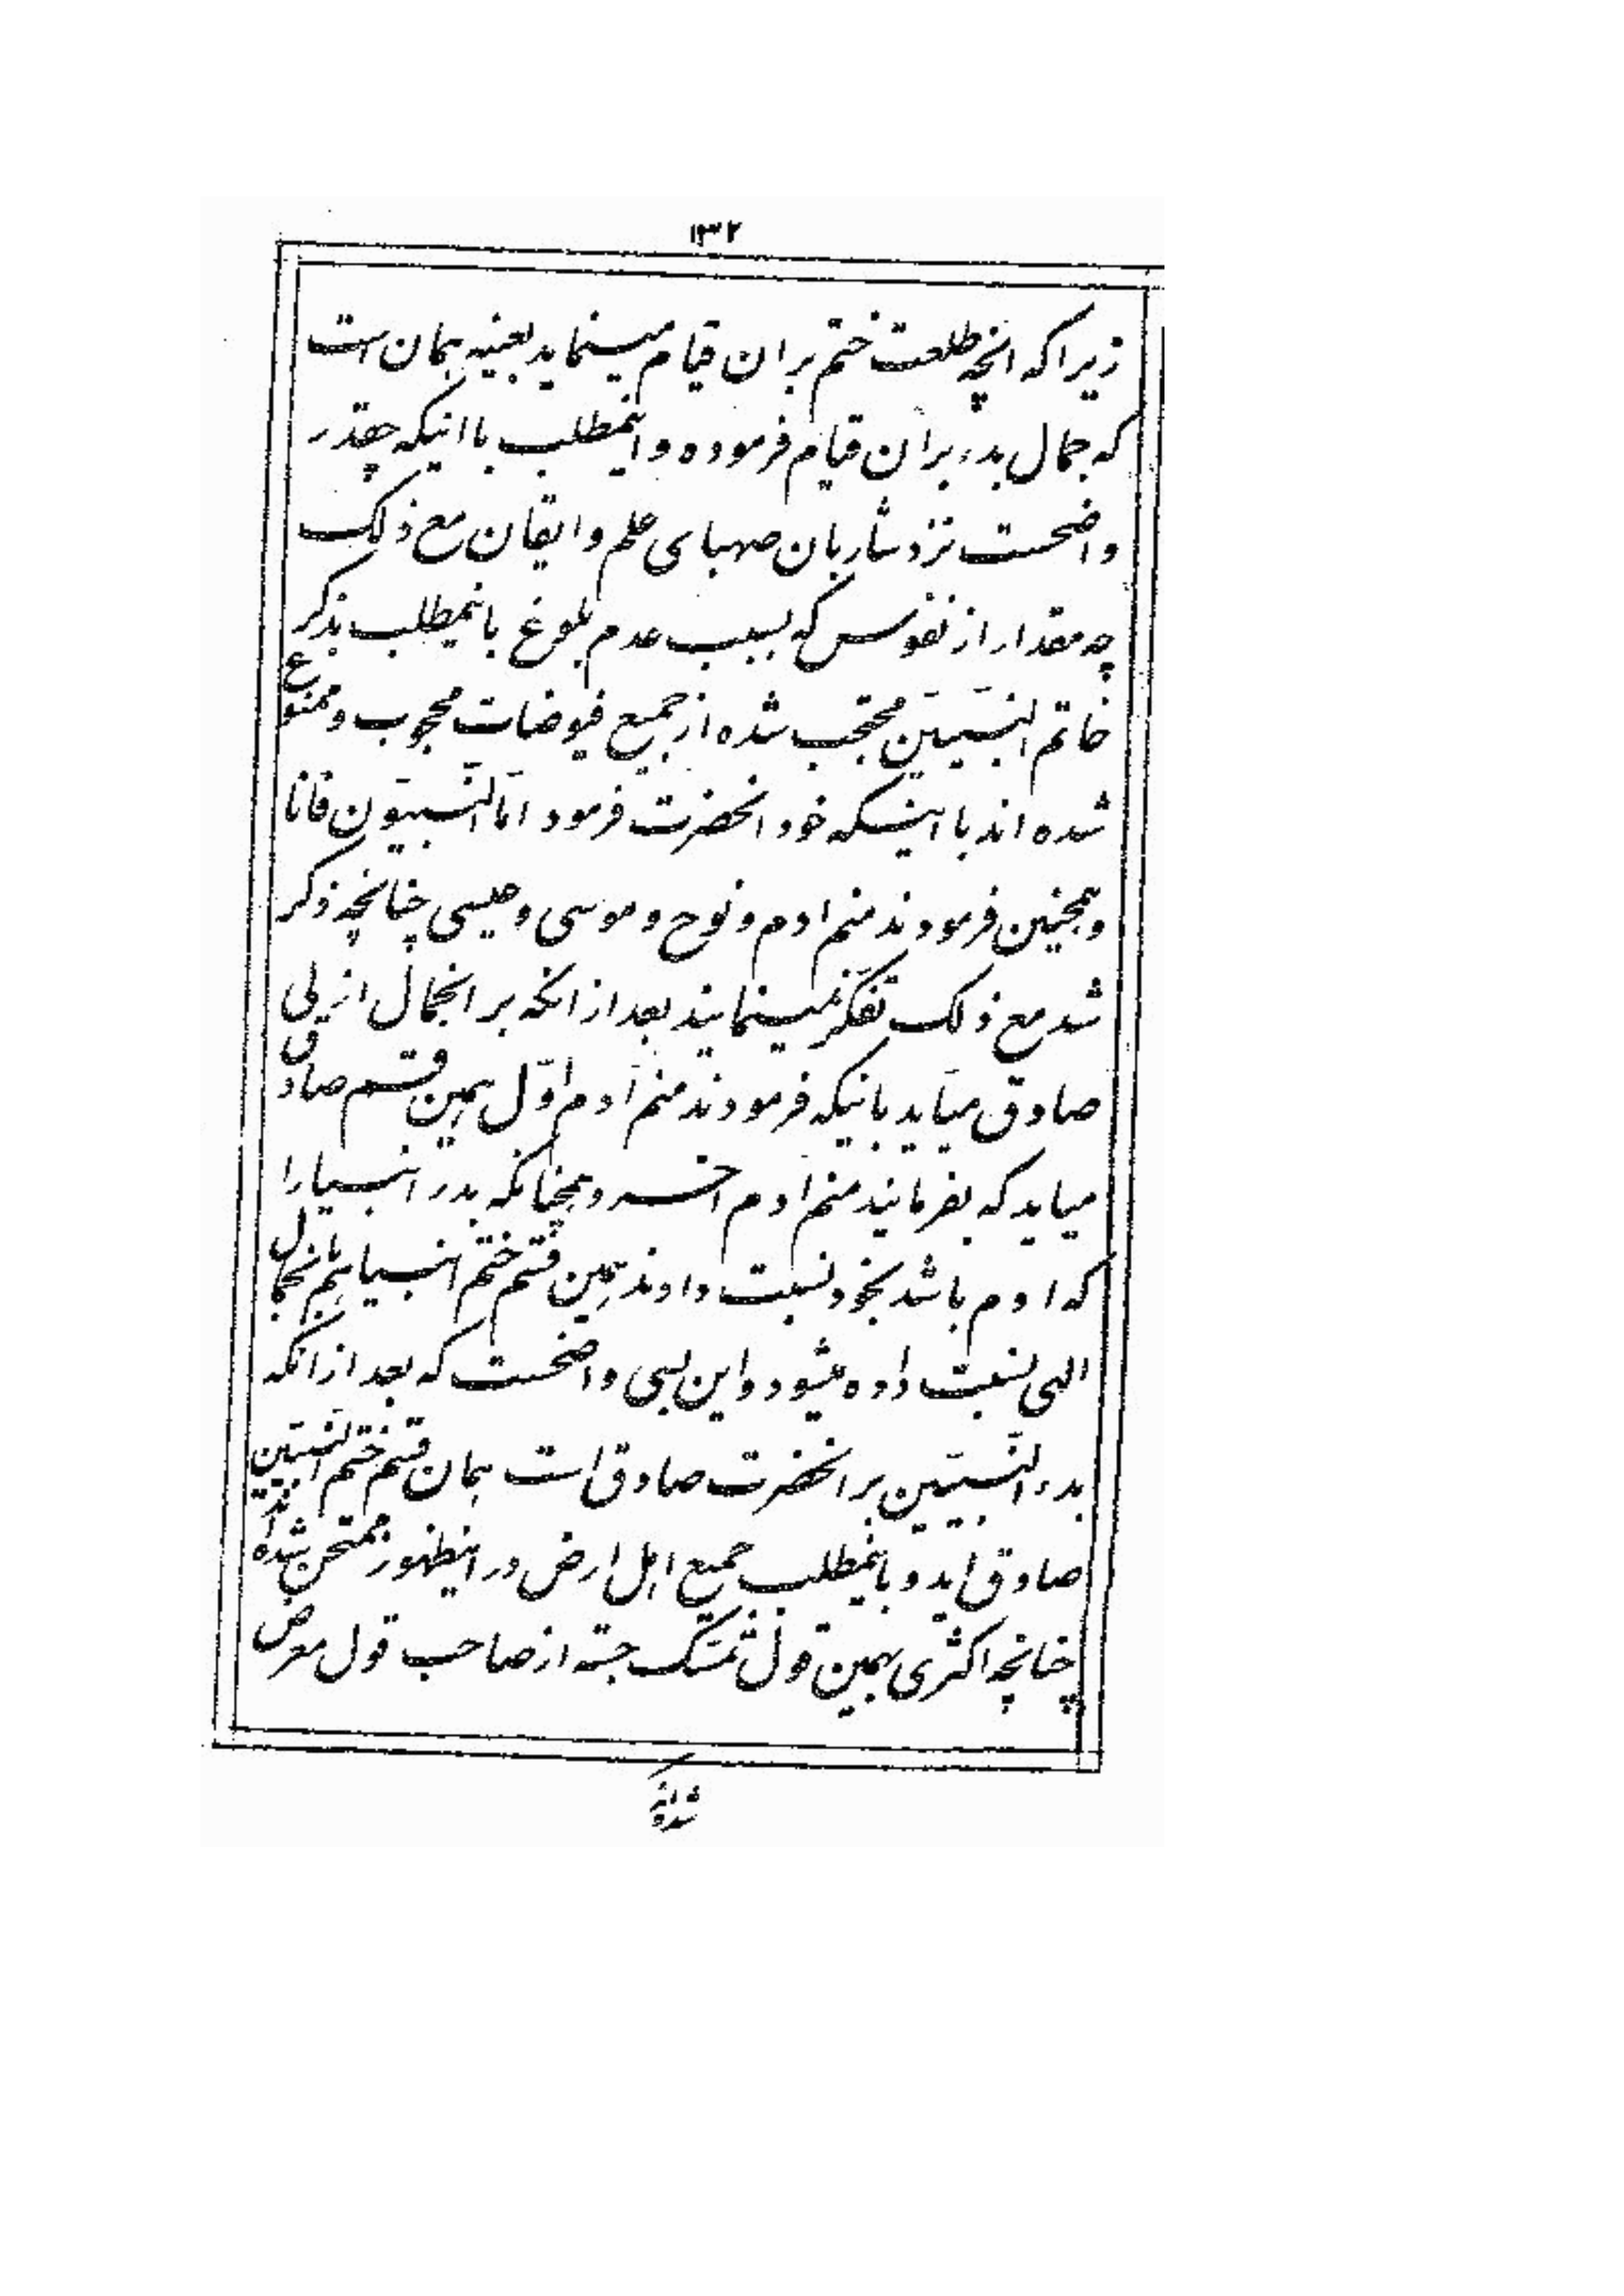 ۱۳۲
زیرا که انچه طلعت ختم بران قیام مینماید بعینه همان است
که جمال بدء بران قیام فرموده و اینمطلب با اینکه چقدر
واضحست نزد شاربان صهبای علم و ایقان مع ذلک
چه مقدار از نفوس که بسبب عدم بلوغ باینمطلب بذکر
خاتم النبیین محتجب شده از جمیع فیوضات محجوب و ممنوع
شده اند با اینکه خود انحضرت فرمود اما النبیون فانا
و همچنین فرمودند منم ادم و نوح و موسی و عیسی چنانچه ذکر
شد مع ذلک تفکر نمینمایند بعد از انکه بر انجمال ازلی
صادق میآید باینکه فرمودند منم آدم اوّل همین قسم صادق
میاید که بفرمایند منم ادم اخر و همچنانکه بدء انبیا را
که ادم باشد بخود نسبت دادند همین قسم ختم انبیا هم بانجمال
الهی نسبت داده میشود و این بسی واضحست که بعد از انکه
بدء النبیین بر انحضرت صادق است همان قسم ختم النبیین
صادق اید و باینمطلب جمیع اهل ارض در اینظهور ممتحن شده اند
چنانچه اکثری بهمین قول تمسّک جسته از صاحب قول معرض
شده‌اند